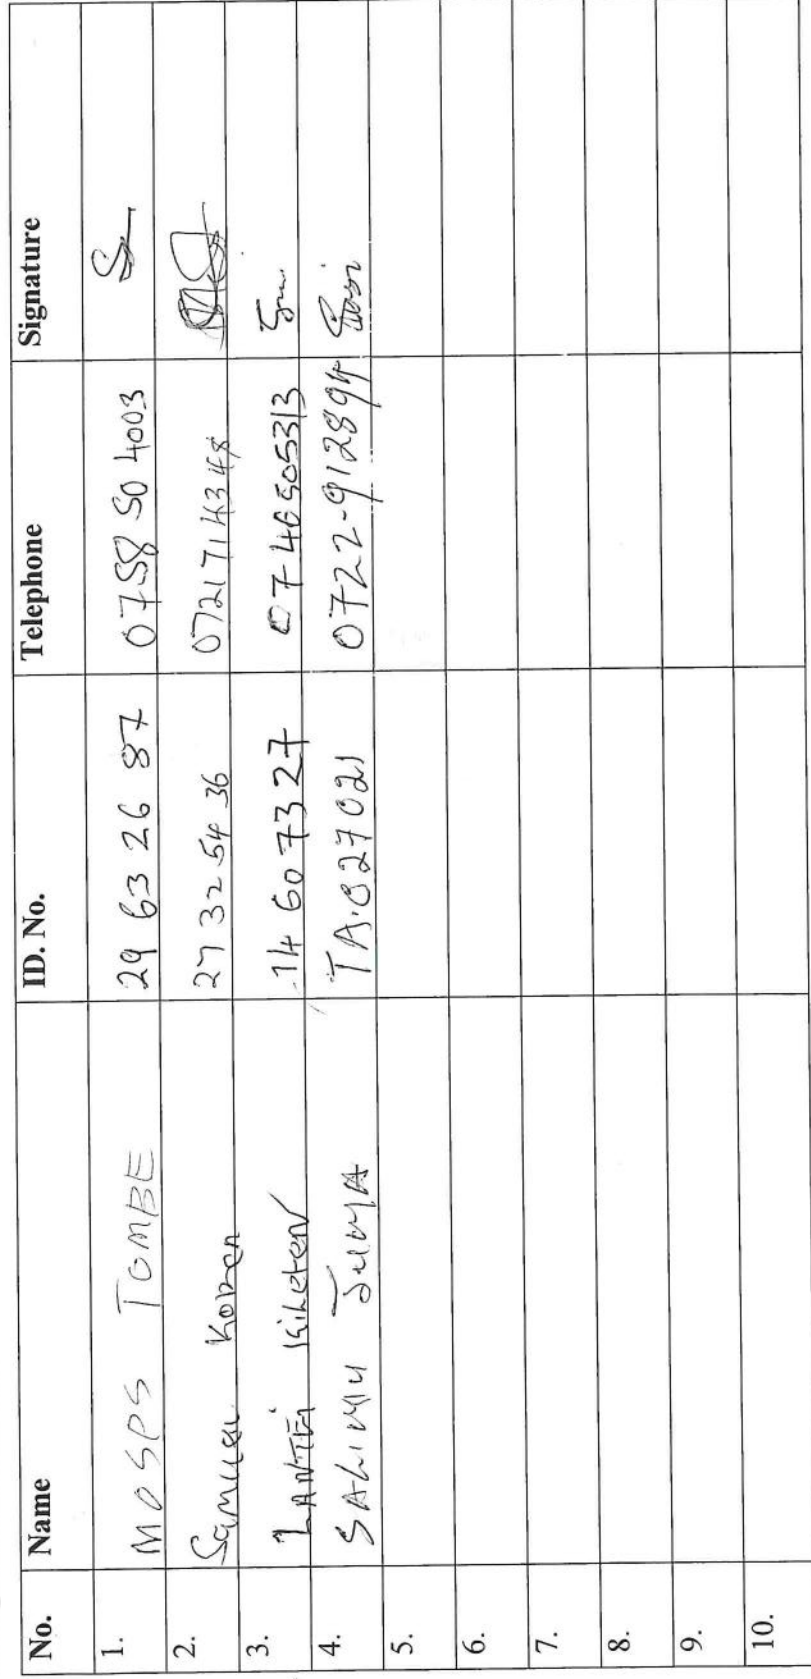 No. Name ID. No. Telephone Signature
1. MOSES TOMBE 29 63 26 87 0758 50 4003
2. Samuel Koinen 27 32 54 36 0721714348
3. LANTEI Kiketen 14 607327 0740505313
4. SALIMU JUMA TA.027021 0722-912894
5.
6.
7.
8.
9.
10.